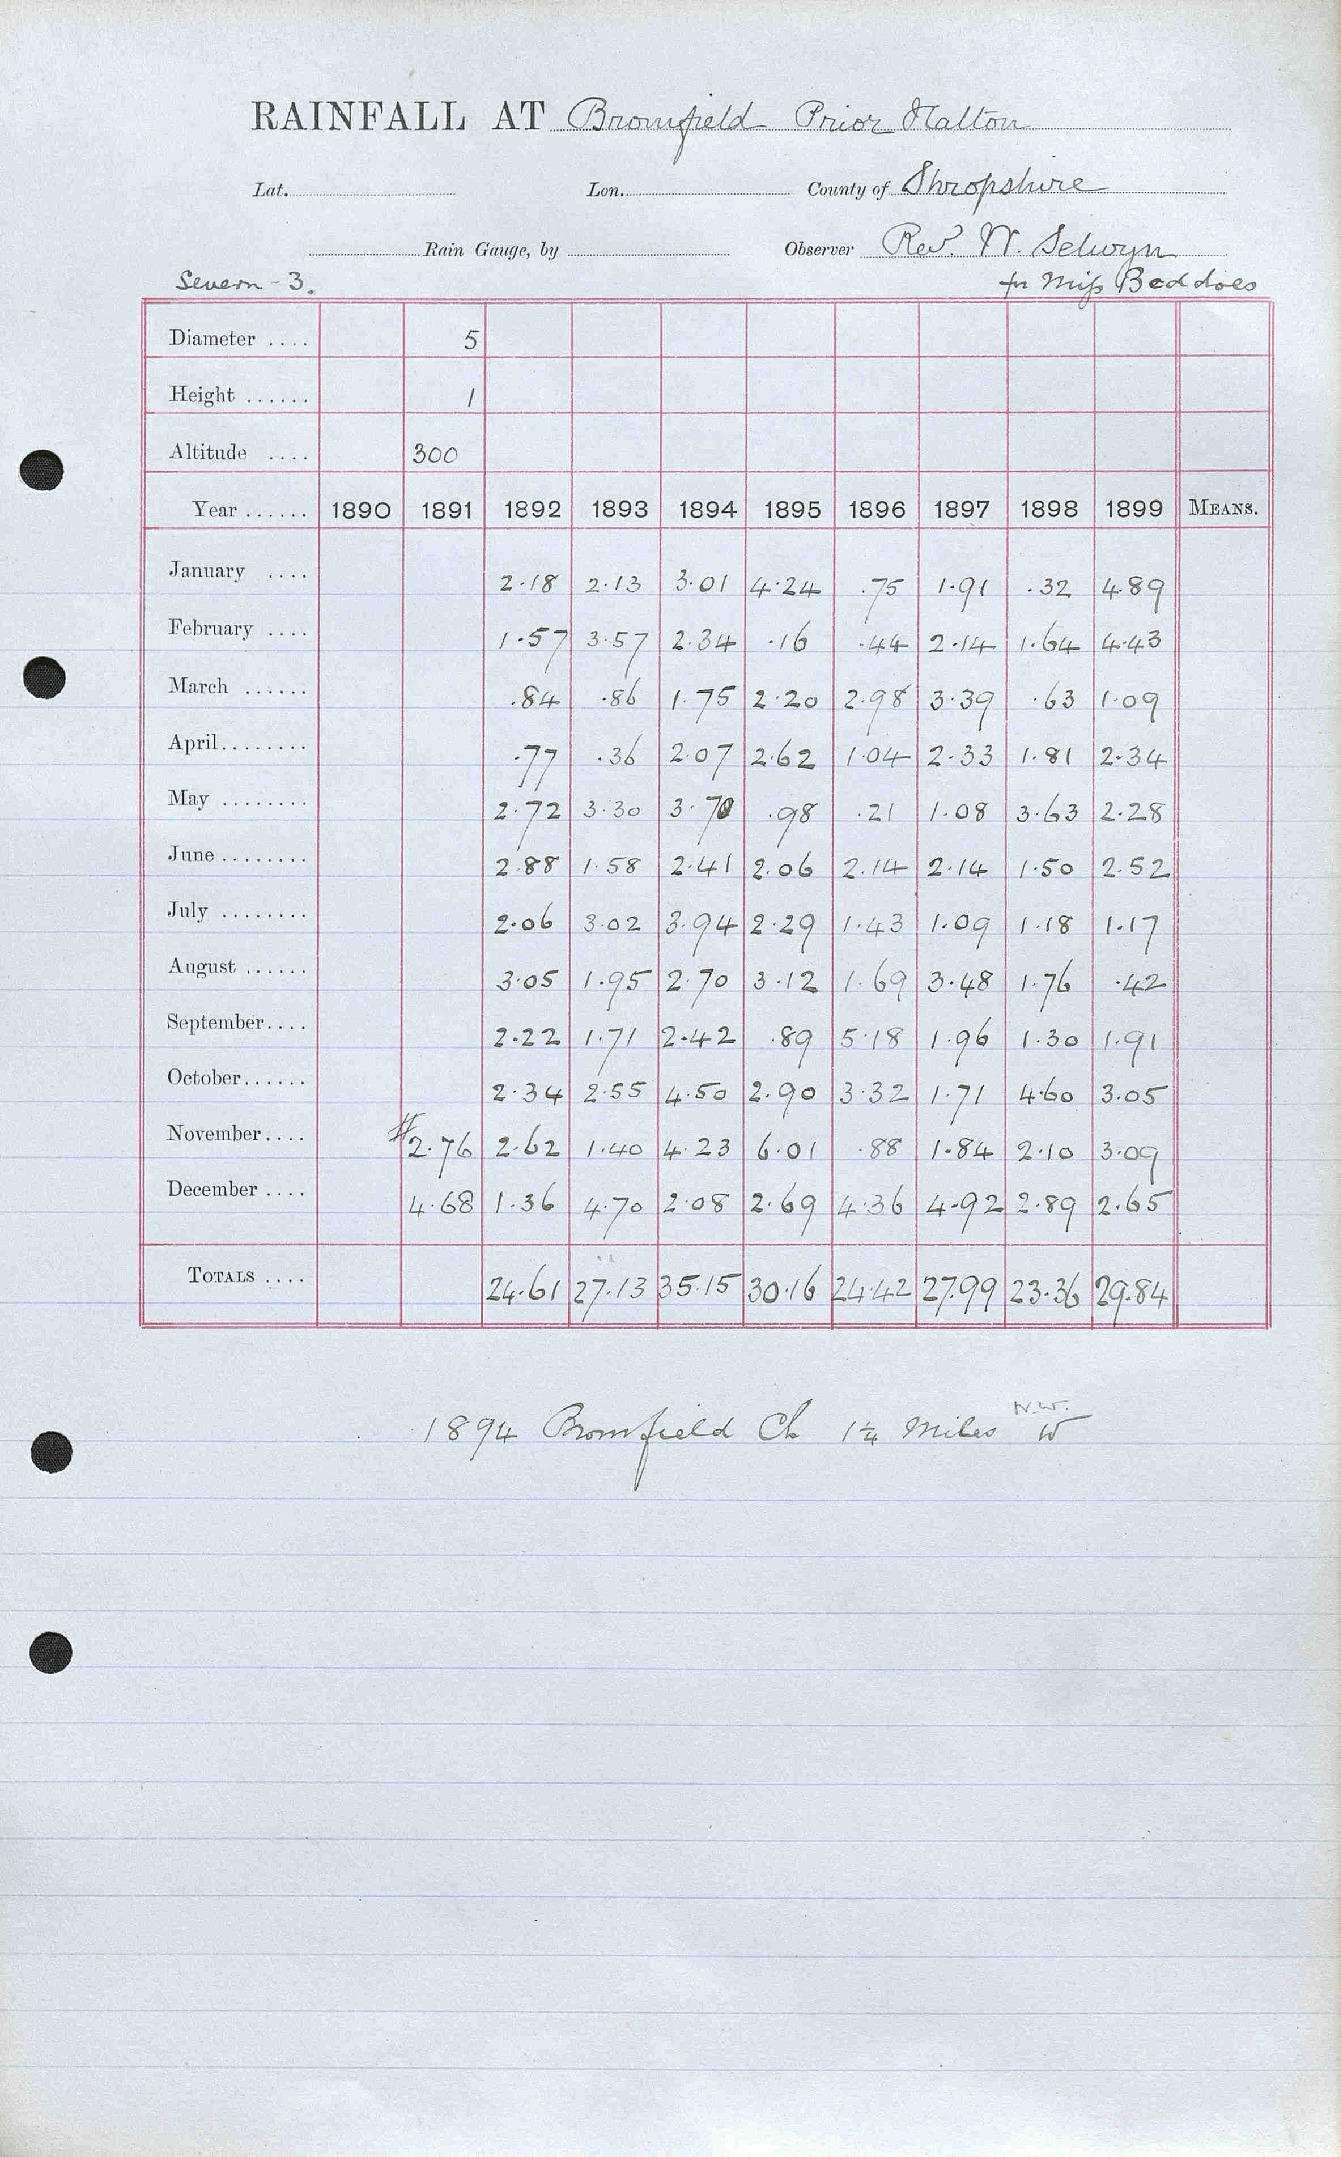 RAINFALL AT Bromfield Prior Halton
Lat. Lon. County of Shropshire
Rain Gauge, by Observer Rev. W. Selwyn
Severn - 3. for Miss Beddoes
Diameter .... 5
Height ...... 1
Altitude .... 300
Year ...... 1890 1891 1892 1893 1894 1895 1896 1897 1898 1899 MEANS.
January .... 2.18 2.13 3.01 4.24 .75 1.91 .32 4.89
February .... 1.57 3.57 2.34 .16 .44 2.14 1.64 4.43
March ...... .84 .86 1.75 2.20 2.98 3.39 .63 1.09
April........ .77 .36 2.07 2.62 1.04 2.33 1.81 2.34
May ........ 2.72 3.30 3.70 .98 .21 1.08 3.63 2.28
June ........ 2.88 1.58 2.41 2.06 2.14 2.14 1.50 2.52
July ........ 2.06 3.02 3.94 2.29 1.43 1.09 1.18 1.17
August ...... 3.05 1.95 2.70 3.12 1.69 3.48 1.76 .42
September.... 2.22 1.71 2.42 .89 5.18 1.96 1.30 1.91
October...... 2.34 2.55 4.50 2.90 3.32 1.71 4.60 3.05
November.... #2.76 2.62 1.40 4.23 6.01 .88 1.84 2.10 3.09
December .... 4.68 1.36 4.70 2.08 2.69 4.36 4.92 2.89 2.65
TOTALS .... 24.61 27.13 35.15 30.16 24.42 27.99 23.36 29.84
N.W.
1894 Bromfield Ch 1¼ Miles W